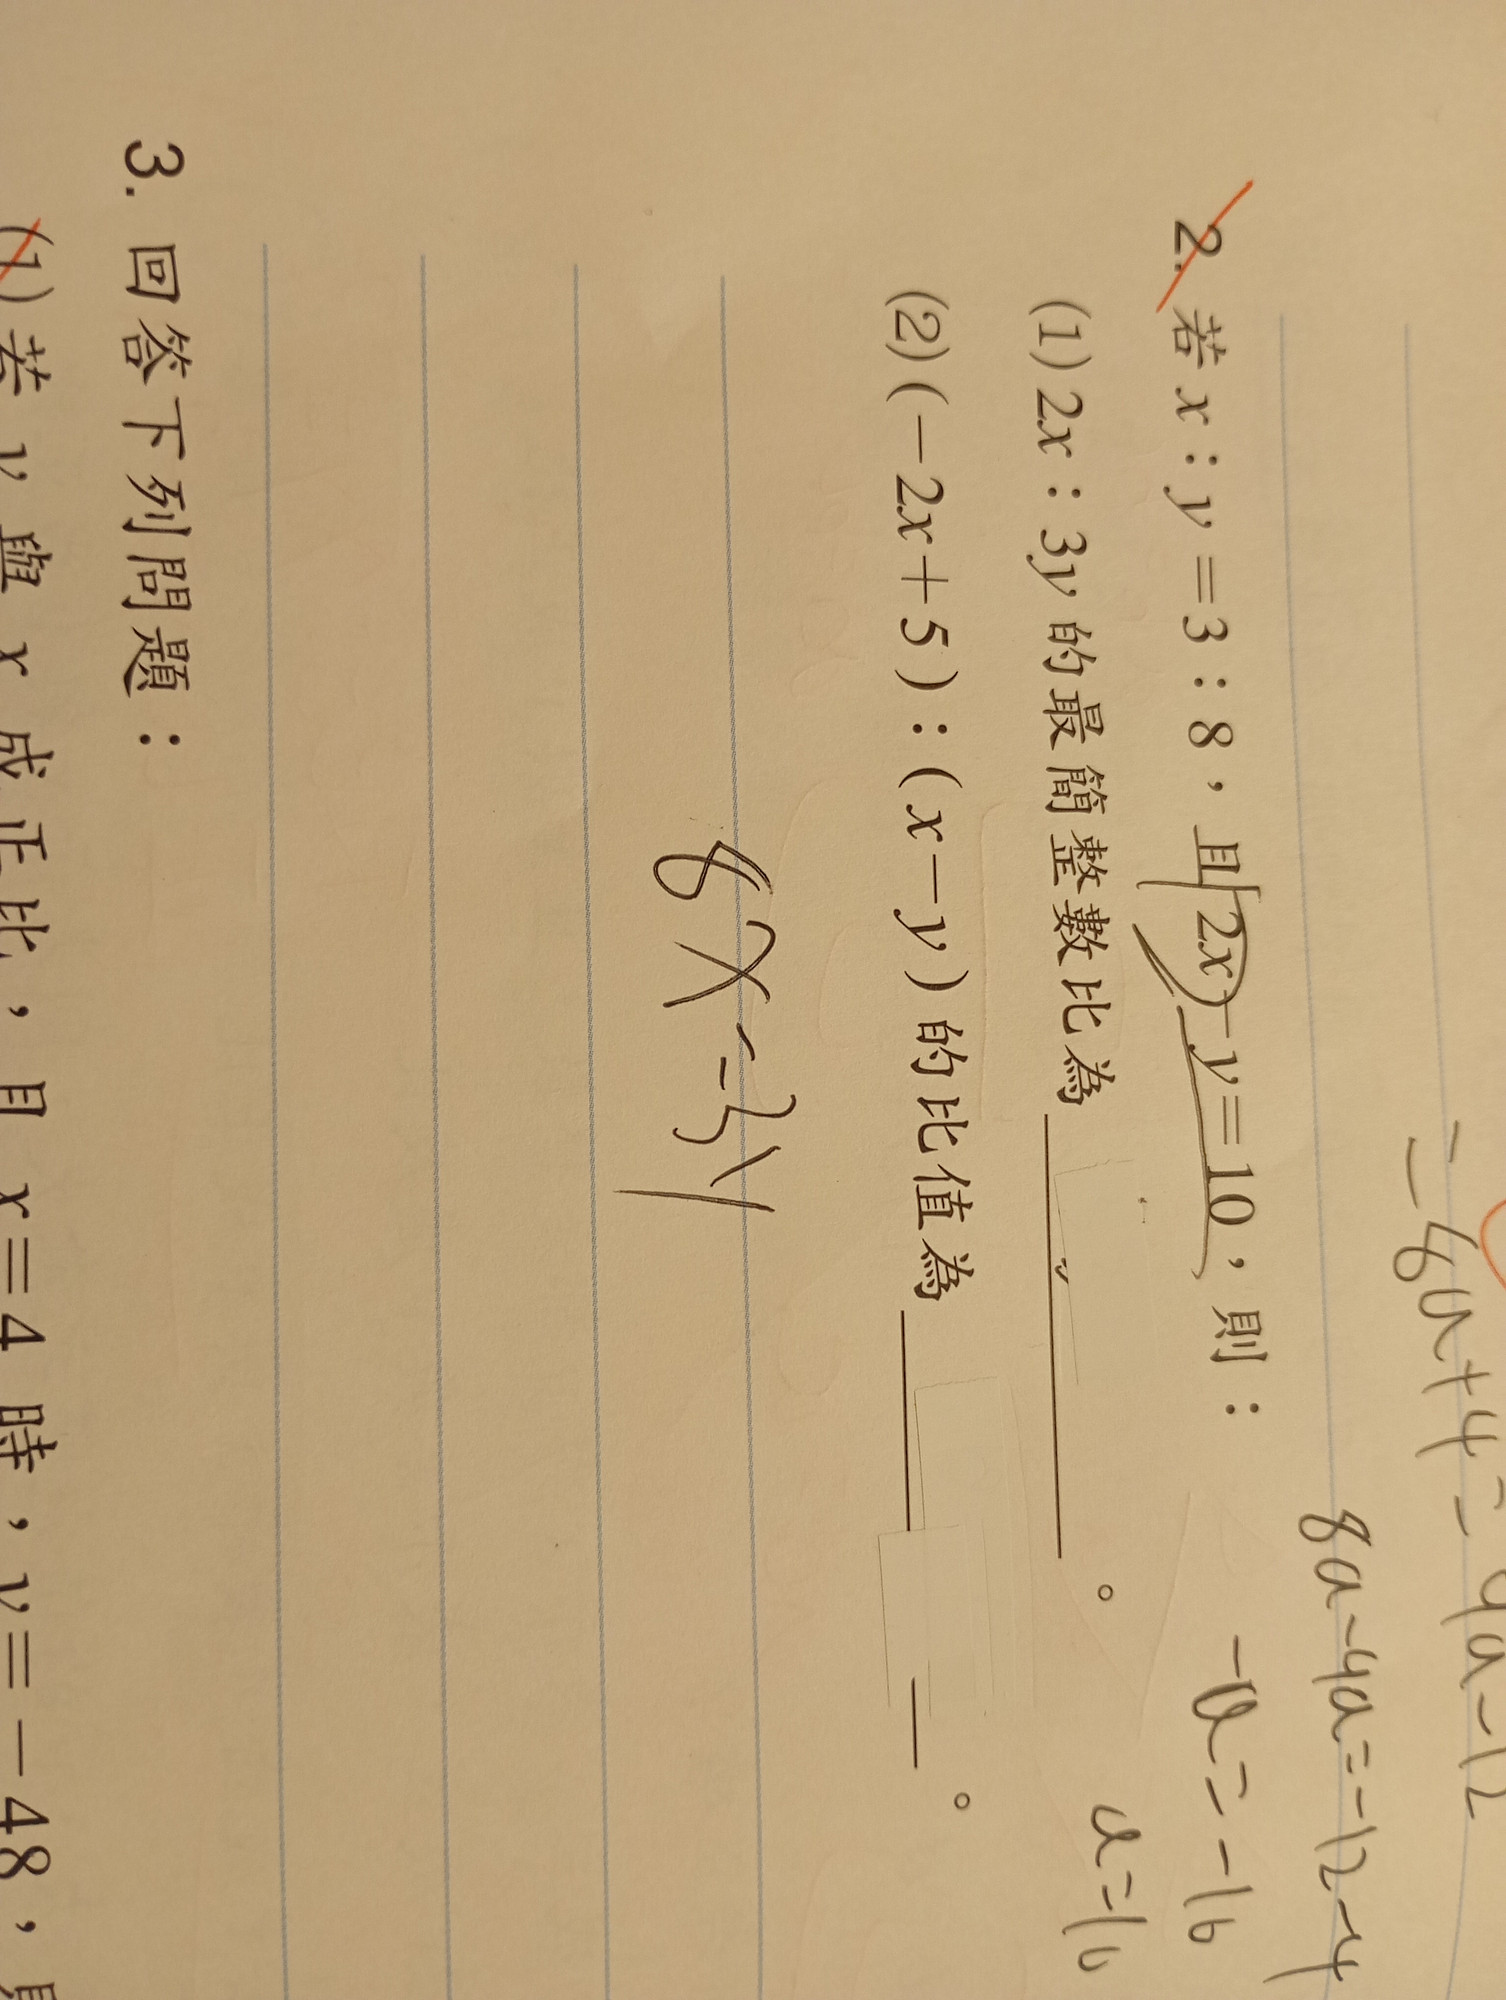 －8a＋4＝－9a－12
8a－4a＝－12－4
2. 若 x：y＝3：8，且 2x－y＝10，則：
－a＝－16
(1) 2x：3y 的最簡整數比為＿＿＿＿＿＿。
a＝16
(2) (－2x＋5)：(x－y) 的比值為＿＿＿＿＿＿。
8x＝3y
3. 回答下列問題：
(1) 若 y 與 x 成正比，且 x＝4 時，y＝－48，